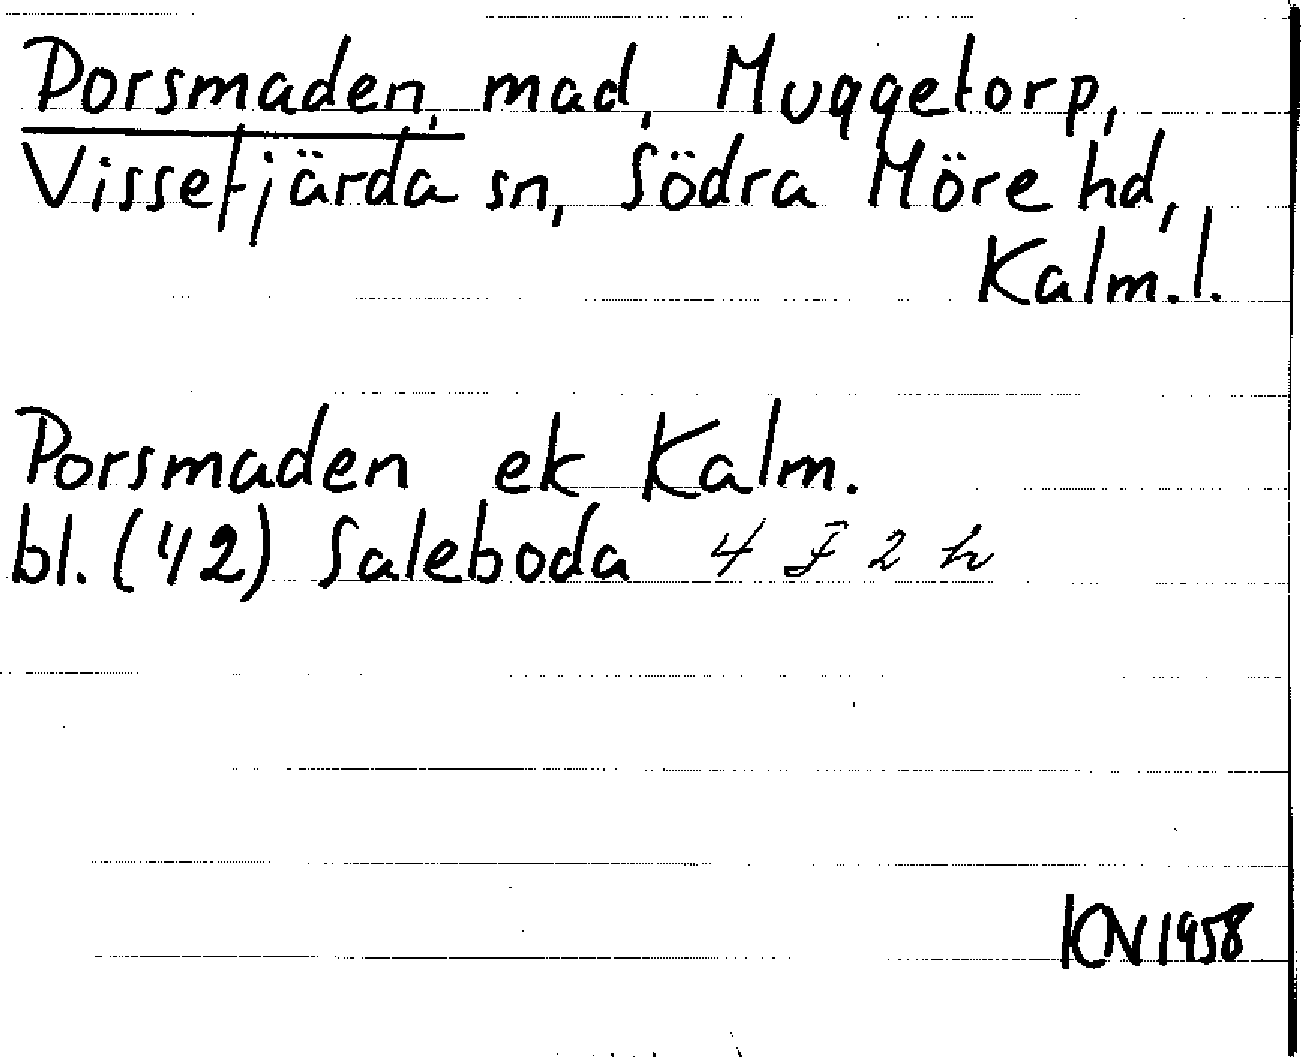 Porsmaden, mad, Muggetorp,
Vissefjärda sn, Södra Möre hd,
Kalm. l.
Porsmaden ek Kalm.
bl. (42) Saleboda 4 F 2 h
KN 1958